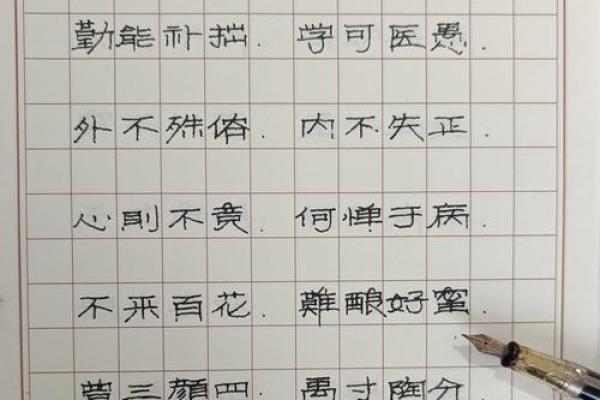 勤能补拙. 学可医愚.
外不殊俗. 内不失正.
心則不竞. 何惮于病.
不采百花. 難酿好蜜.
曾三顏四. 禹寸陶分.